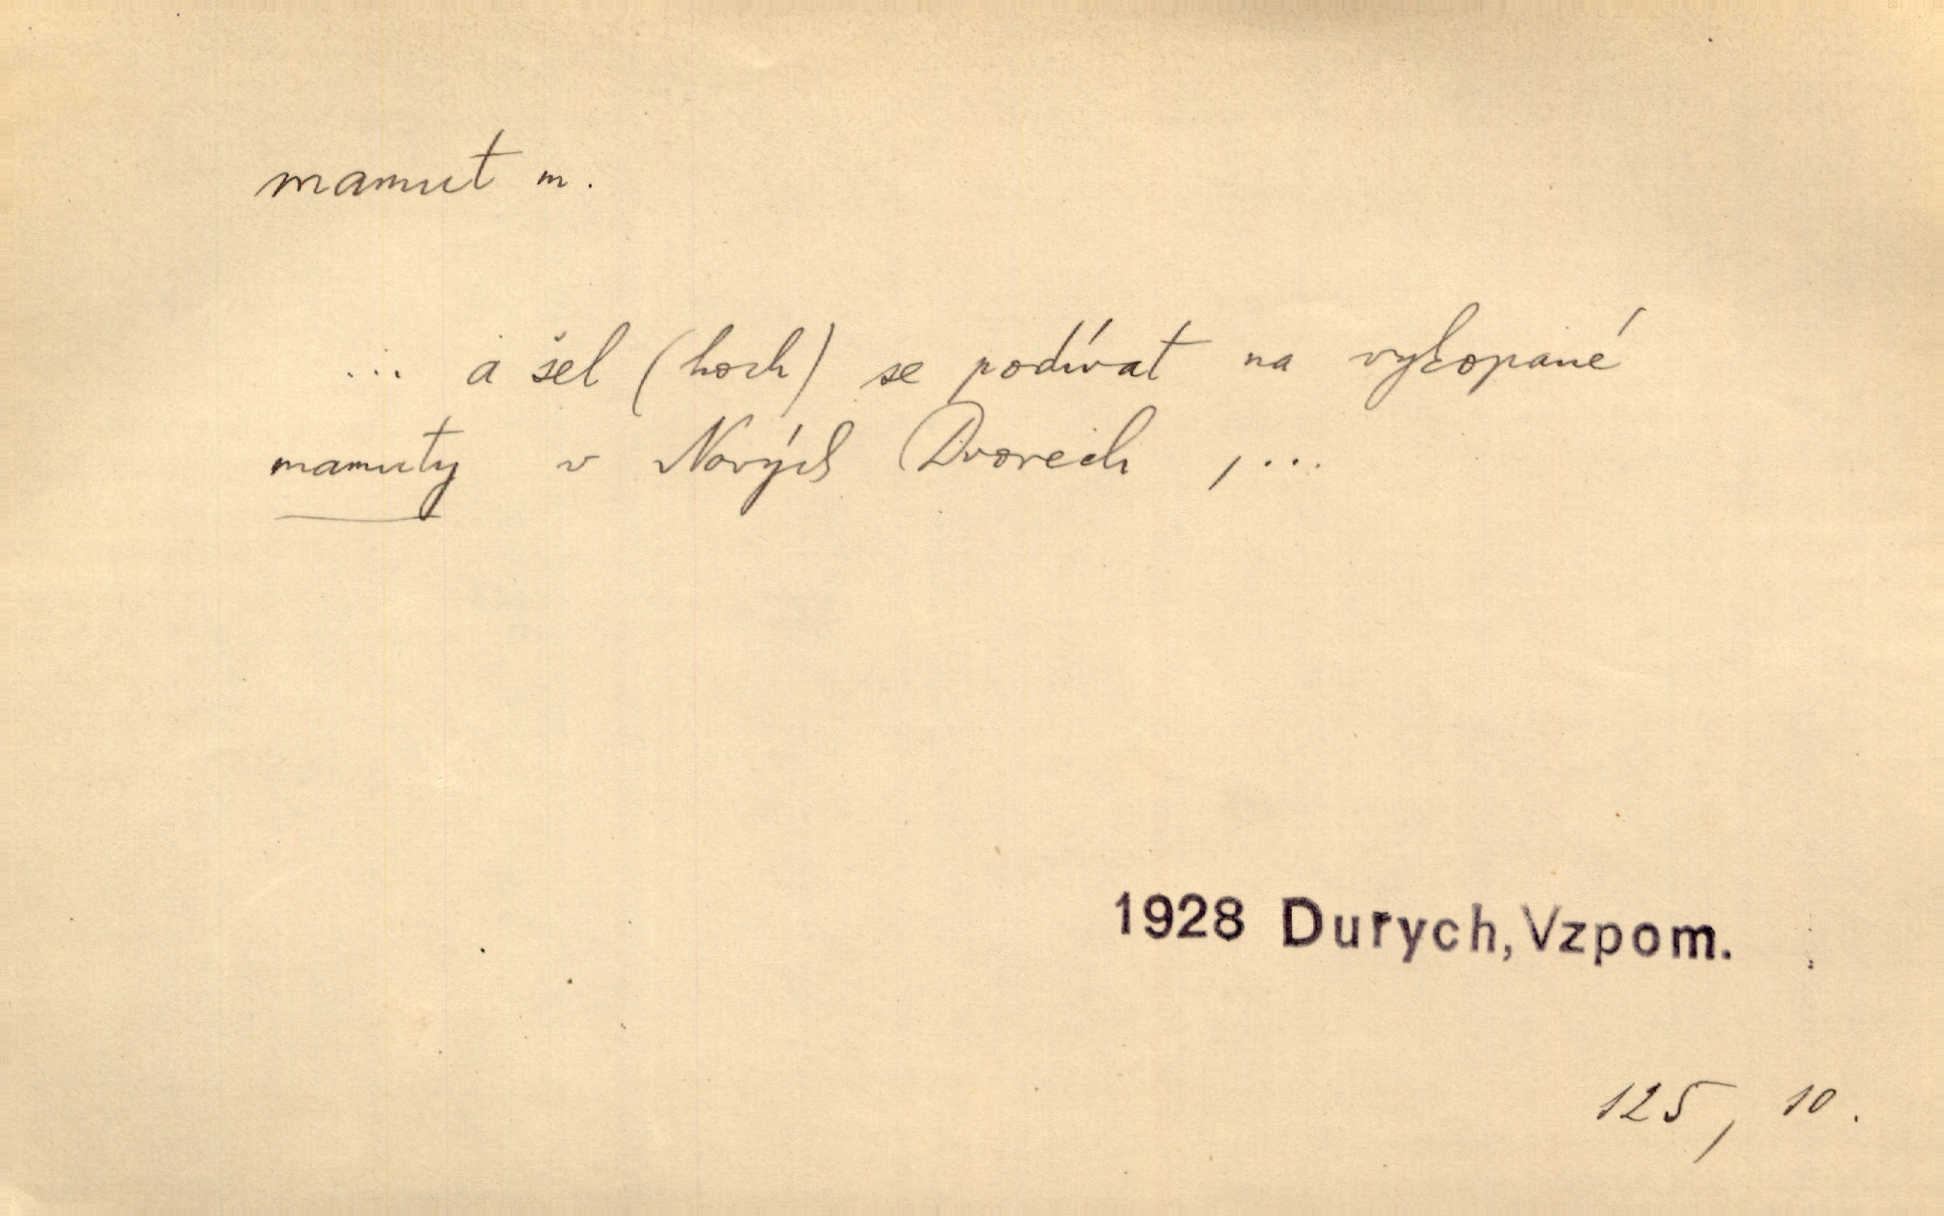 mamut m.
... a šel (hoch) se podívat na vykopané
mamuty v Nových Dvorech , ...
1928 Durych, Vzpom.
125, 10.